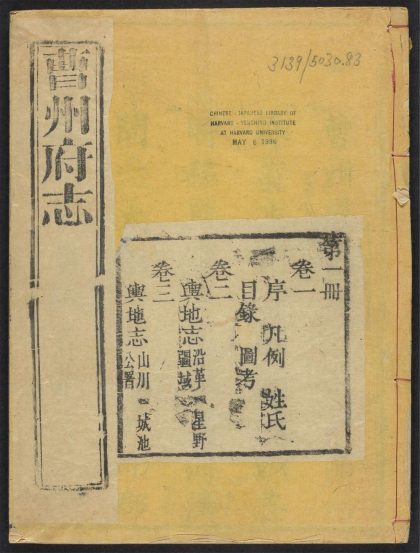 曹州府志
3139/5030.83
CHINESE - JAPANESE LIBRARY OF
HARVARD - YENCHING INSTITUTE
AT HARVARD UNIVERSITY
MAY 6 1936
第一冊
卷一
序 凡例 姓氏
目錄 圖考
卷二
輿地志 沿革 星野
疆域
卷三
輿地志 山川 城池
公署